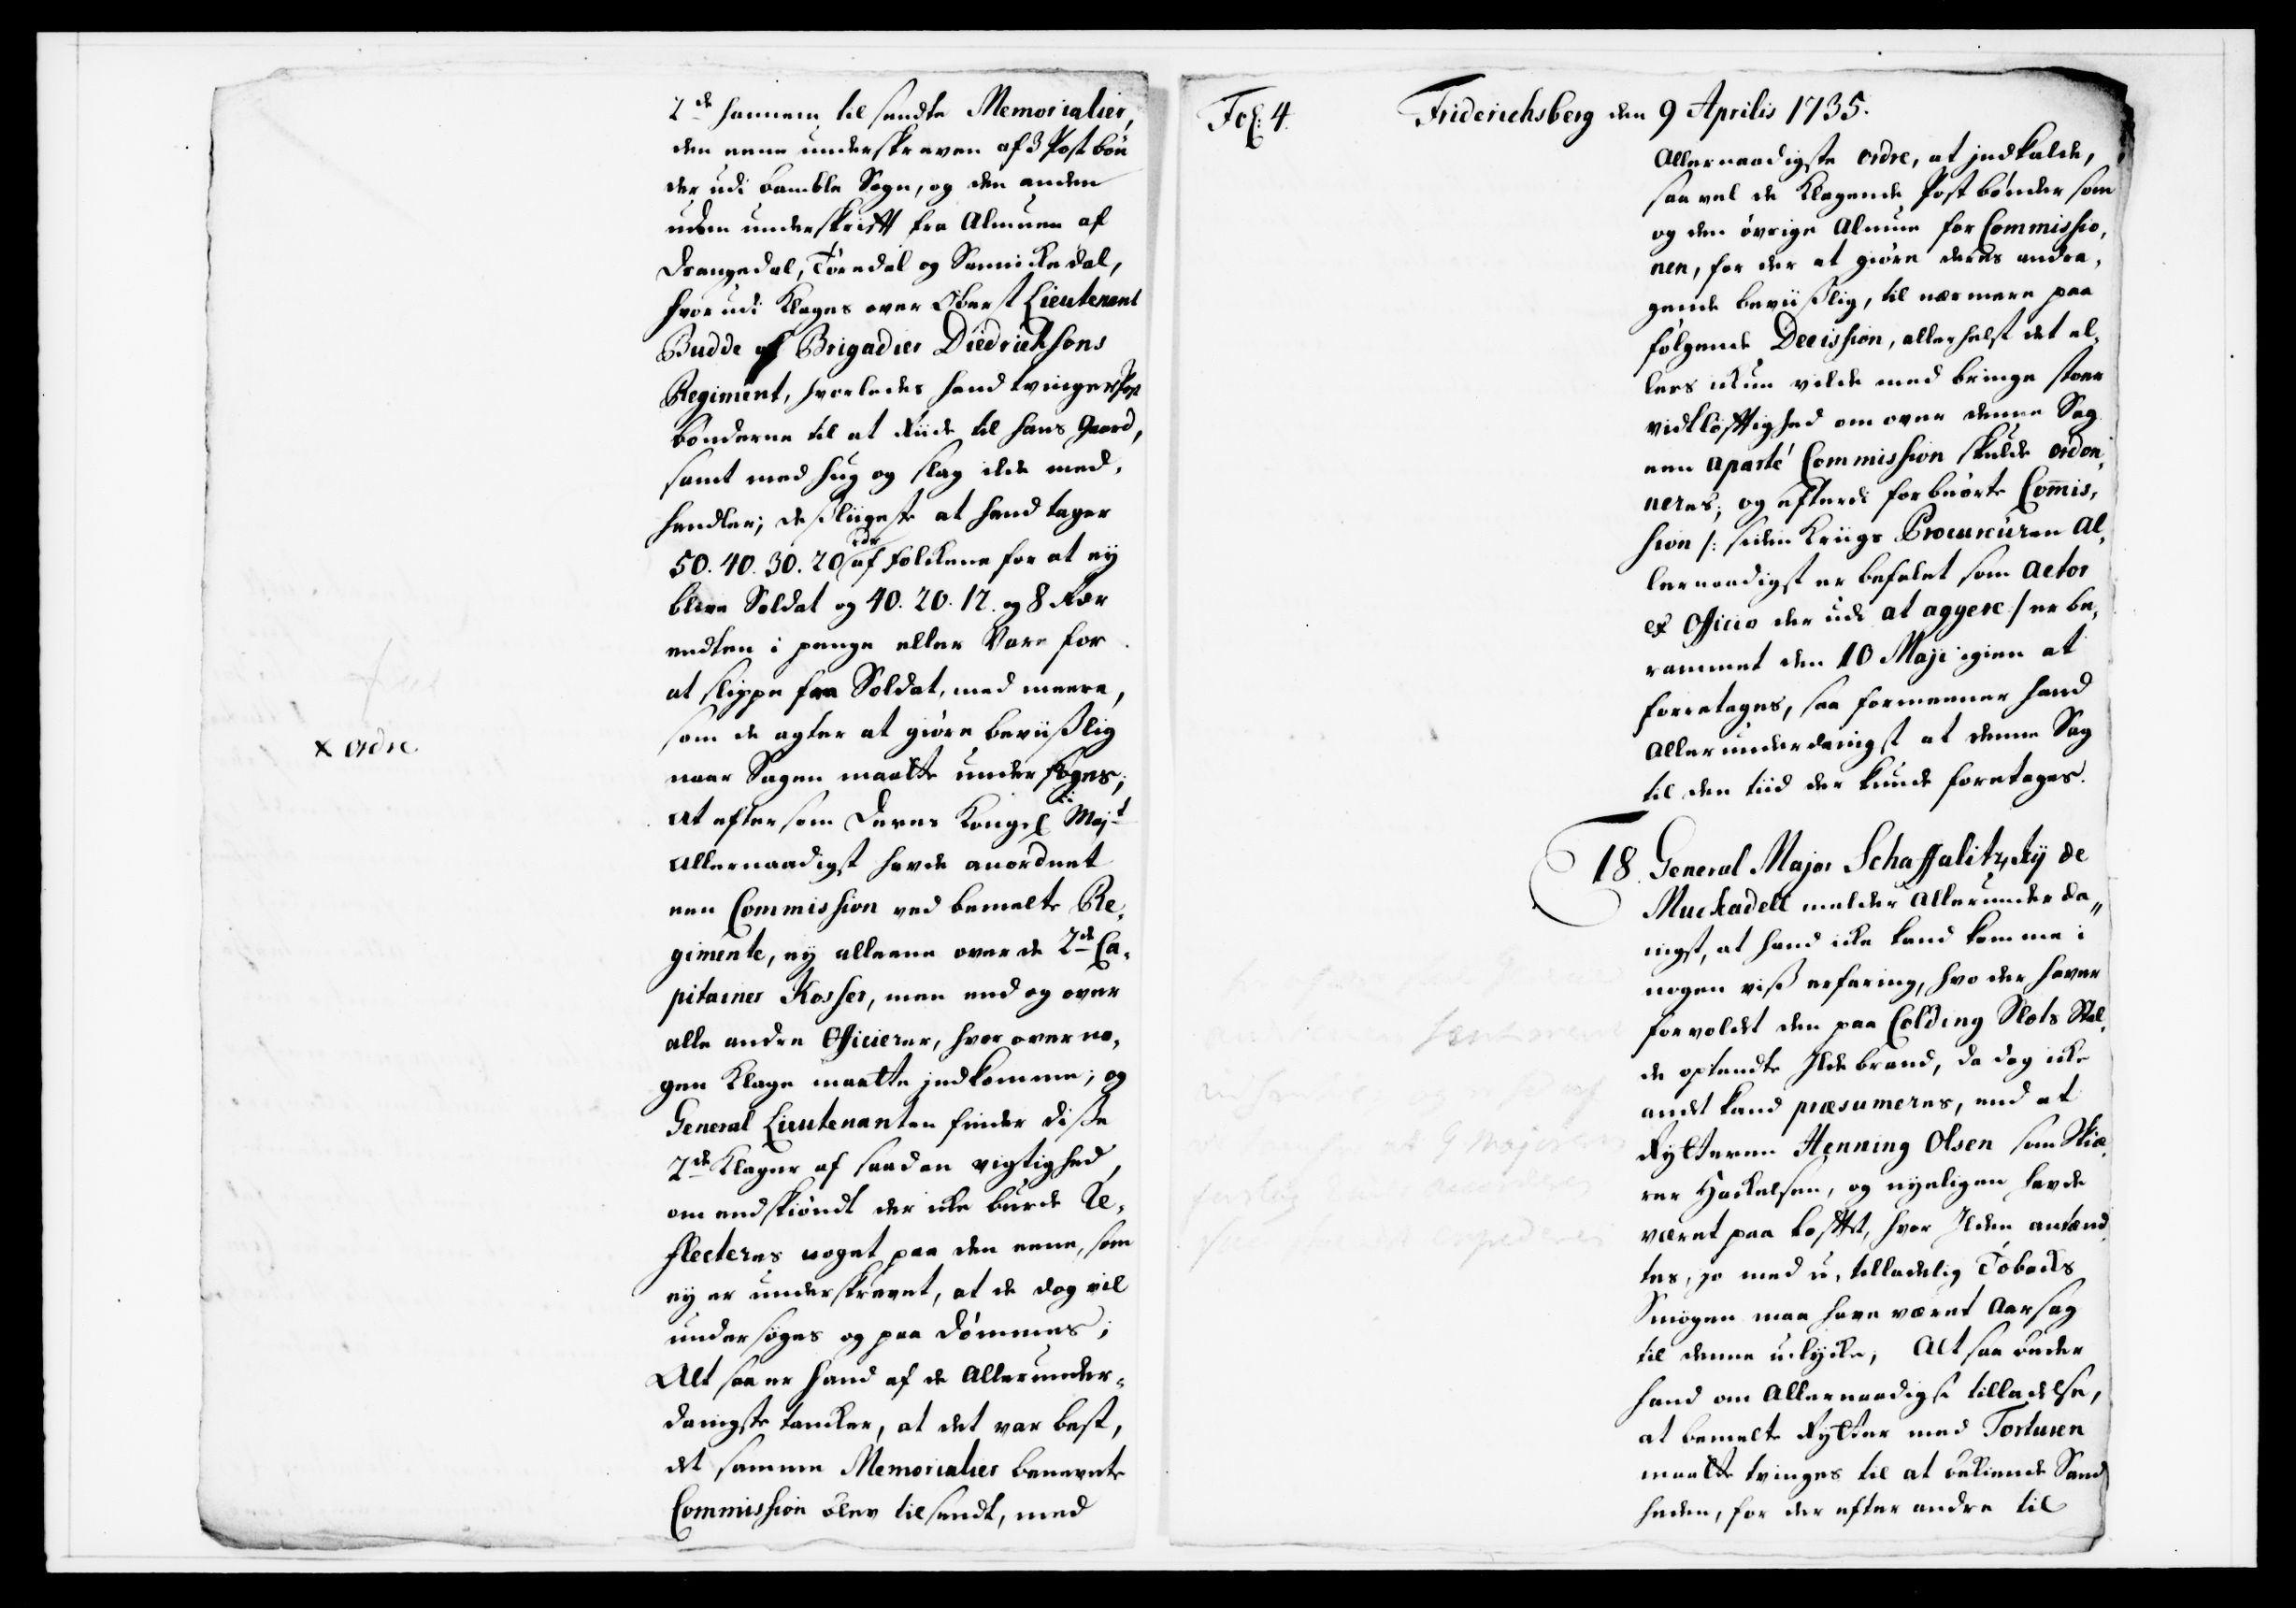 2de hannem til sendte Memorialier,
den eene underskreven af 3 Post bøn
der udi bamble Sogn, og den anden
uden underskrifft fra Almuen af
Drangedal, Tøredal og Sannickedal,
hvor udi Klages over Oberst Lieutenent
Budde af Brigadier Diedrichsons
Regiment, hvorledes hand tvinger Post
bønderne til at kiøde til hans Gaard,
samt med hug og slag ilde med,
handler; desliigeste at hand tager
50. 40. 30. 20 rdr af folckene for at ey
blive Soldat og 40. 20. 12. og 8 Rdr
endten i penge eller Vare for
at slippe fra Soldat, med meere,
som de agter at giøre beviislig
naar Sagen maatte undersøges;
x ordre
At efter som Deres Kongel Majt
Allernaadigst havde anordnet
een Commission ved bemelte Re,
gimente, ey alleene over de 2de Ca,
pitainer Kosser, men end og over
alle andre Officierer, hvor over no,
gen Klage maatte indkomme; og
General Lieutenanten finder disse
2de Klager af saadan vigtighed,
om endskiøndt der icke burde Re,
flecteres noget paa den eene, som
ey er underskrevet, at de dog vil
undersøges og paa dømmes;
Alt saa er hand af de Allerunder,
danigste tancker, at det var best,
at samme Memorialier benevnte
Commission blev tilsendt, med
Fol: 4.
Friderichsberg den 9 Aprilis 1735.
Allernaadigste ordre, at indkalde,
saa vel de Klagende Post bønder som
og den øvrige Almue for Commissio,
nen, for der at giøre deres andra,
gende beviislig, til nærmere paa
følgende Decission, allerhelst det el,
lers ickun vilde med bringe stoer
vidtløfftighed om over denne Sag
een aparté Commission skulde ordon,
neres; og efterdi forberørte Com̅is,
sion /: siden Kriigs Procureuren Al,
lernaadigst er befalet som Actor
ex Officio der udi at aggere :/ er be,
rammet den 10 Maji igien at
foretages, saa formeener hand
Allerunderdanigst at denne Sag
til den tiid der kunde foretages.
18. General Major Schaffalitzky de
Muckadell melder Allerunderda,,
nigst, at hand icke kand komme i
nogen viss erfaring, hvo der haver
forvoldt den paa Colding Slots Stal,
de optendte Ildebrand, da dog icke
andet kand præsumeres, end at
Rytteren Henning Olsen som Skiæ,
rer Hackelsen, og nyeligen havde
været paa lofftet, hvor Ilden antænd,
tes, jo med u, tilladelig Tobacks
Smøgen maa have været Aarsag
til denne ulycke, Alt saa beder
hand om Allernaadigst tilladelse,
at bemelte Rytter med Torturen
maatte tvinges til at bekiende Sand
heden, for der efter andre til